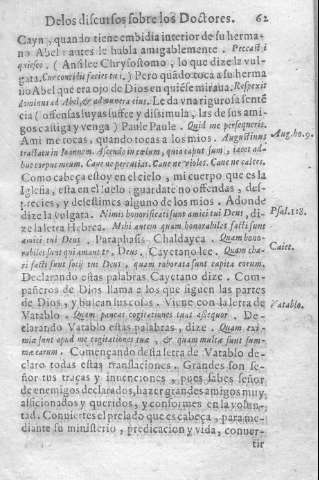 De los discursos sobre los Doctores. 62
Cayn, quando tiene embidia interior de su herma-
no Abel: antes le habla amigablemente. Peccasti
quiesce. (Ansi lee Chrysostomo, lo que dize la vul-
gata. Cur concidit facies tui.) Pero quãdo toca a su herma
no Abel que era ojo de Dios en quiẽ se miraua. Respexit
Dominus ad Abel, & ad munera eius. Le da vna rigurosa sentẽ
cia (offensas suyas suffre y dissimula, las de sus ami-
gos castiga y venga) Paule Paule. Quid me persequeris.
Ami me tocas, quando tocas a los mios. Augustinus
Aug. ho. 9.
tractatu in Ioannem. Ascendo in cælum, quia caput sum, iacet ad-
huc corpus meum. Caue ne percutias. Caue ne violes. Caue ne calces.
Como cabeça estoy en el cielo, mi cuerpo que es la
Iglesia, esta en el suelo; guardate no offendas, des-
precies, y desestimes alguno de los mios. Adonde
dize la vulgata. Nimis honorificati sunt amici tui Deus, di-
Psal. 138.
ze la letra Hebrea. Mihi autem quam honorabiles facti sunt
amici tui Deus. Paraphasis Chaldayca. Quam hono-
rabiles sunt qui amant te, Deus. Cayetano lee. Quam cha-
Caiet.
ri facti sunt socij tui Deus, quam roborata sunt capita eorum.
Declarando estas palabras Cayetano dize. Com-
pañeros de Dios llama a los que siguen las partes
de Dios, y buscan sus colas. Viene con la letra de
Vatablo. Quem paucas cogitationes tuas assequor. De-
Vatablo.
clarando Vatablo estas palabras, dize. Quam exi-
miæ sunt apud me cogitationes tuæ, & quam multæ sunt sum-
mæ earum. Començando desta letra de Vatablo de-
claro todas estas translaciones. Grandes son se-
ñor tus traças y inuenciones, pues sabes señor
de enemigos declarados, hazer grandes amigos muy
afficionados y queridos, y conformes en la volun-
tad. Conuiertes el prelado que es cabeça, para me-
diante su ministerio, predicacion y vida, conuer-
tir